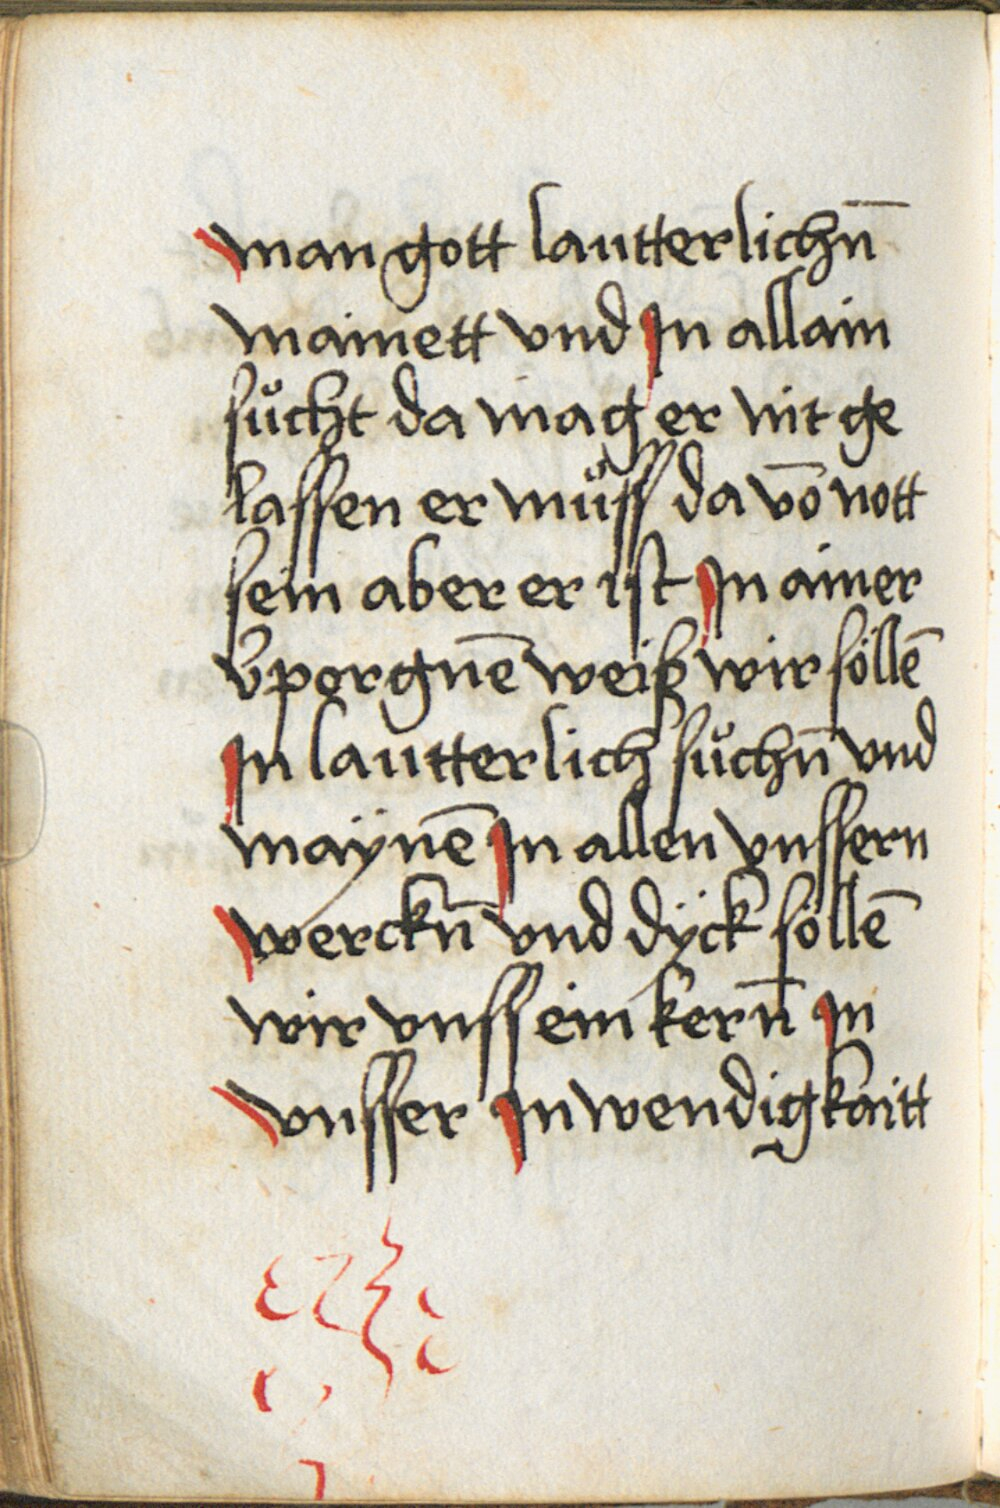 man gott lautterlichn̄
mainett vnd In allain
sůcht da mag er nit ge
lassen er můss da vō nott
sein aber er ist In ainer
v̄porgnē weiß wir söllē
In lautterlich sůchn̄ vnd
maÿnē In allen vnssern
werckn̄ vnd dÿck söllē
wir vnss ein kern̄ In
vnsser Inwendigkaitt